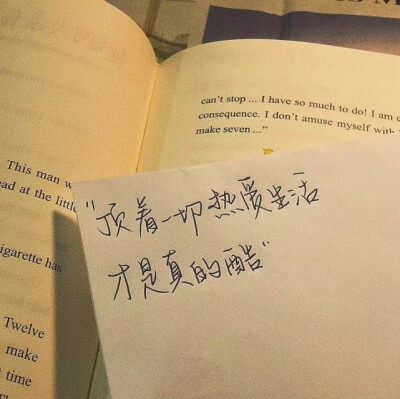 can't stop ... I have so much to do! I am c
consequence. I don't amuse myself with
make seven ..."
This man w
ead at the littl
igarette has
Twelve
make
time
"顶着一切热爱生活
才是真的酷"